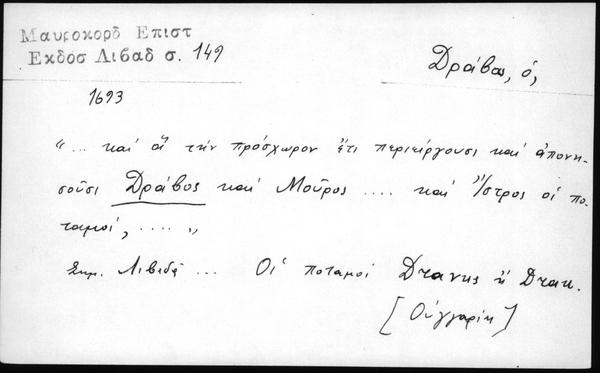 Μαυροκορδ Επιστ
Εκδοσ Λιβαδ σ. 149
Δράβος, ὁ,
1693
“... καὶ ἃ τὴν πρόσχωρον ἔτι περιείργουσι καὶ ἀπονη-
σοῦσι Δράβος καὶ Μοῦρος .... καὶ Ἴστρος οἱ πο-
ταμοί, .... „
Σημ. Λιβαδᾶ ... Οἱ ποταμοὶ ἢ
[Οὑγγαρία]